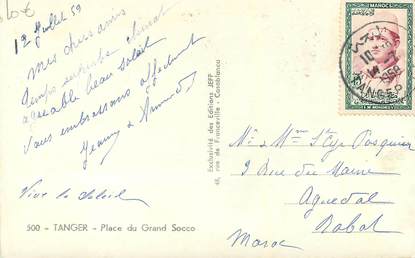 10€
12 Juillet 59
Mes chers amis
Temps superbe climat
agréable beau soleil
Vous embrassons affectueusement
Jeanny &
Vive le soleil
500 - TANGER - Place du Grand Socco
Exclusivité des Editions JEFF
rue de Franceville - Casablanca
MAROC
TANGER
Mr & Mme
9 Rue du Maine
Aguedal
Rabat
Maroc